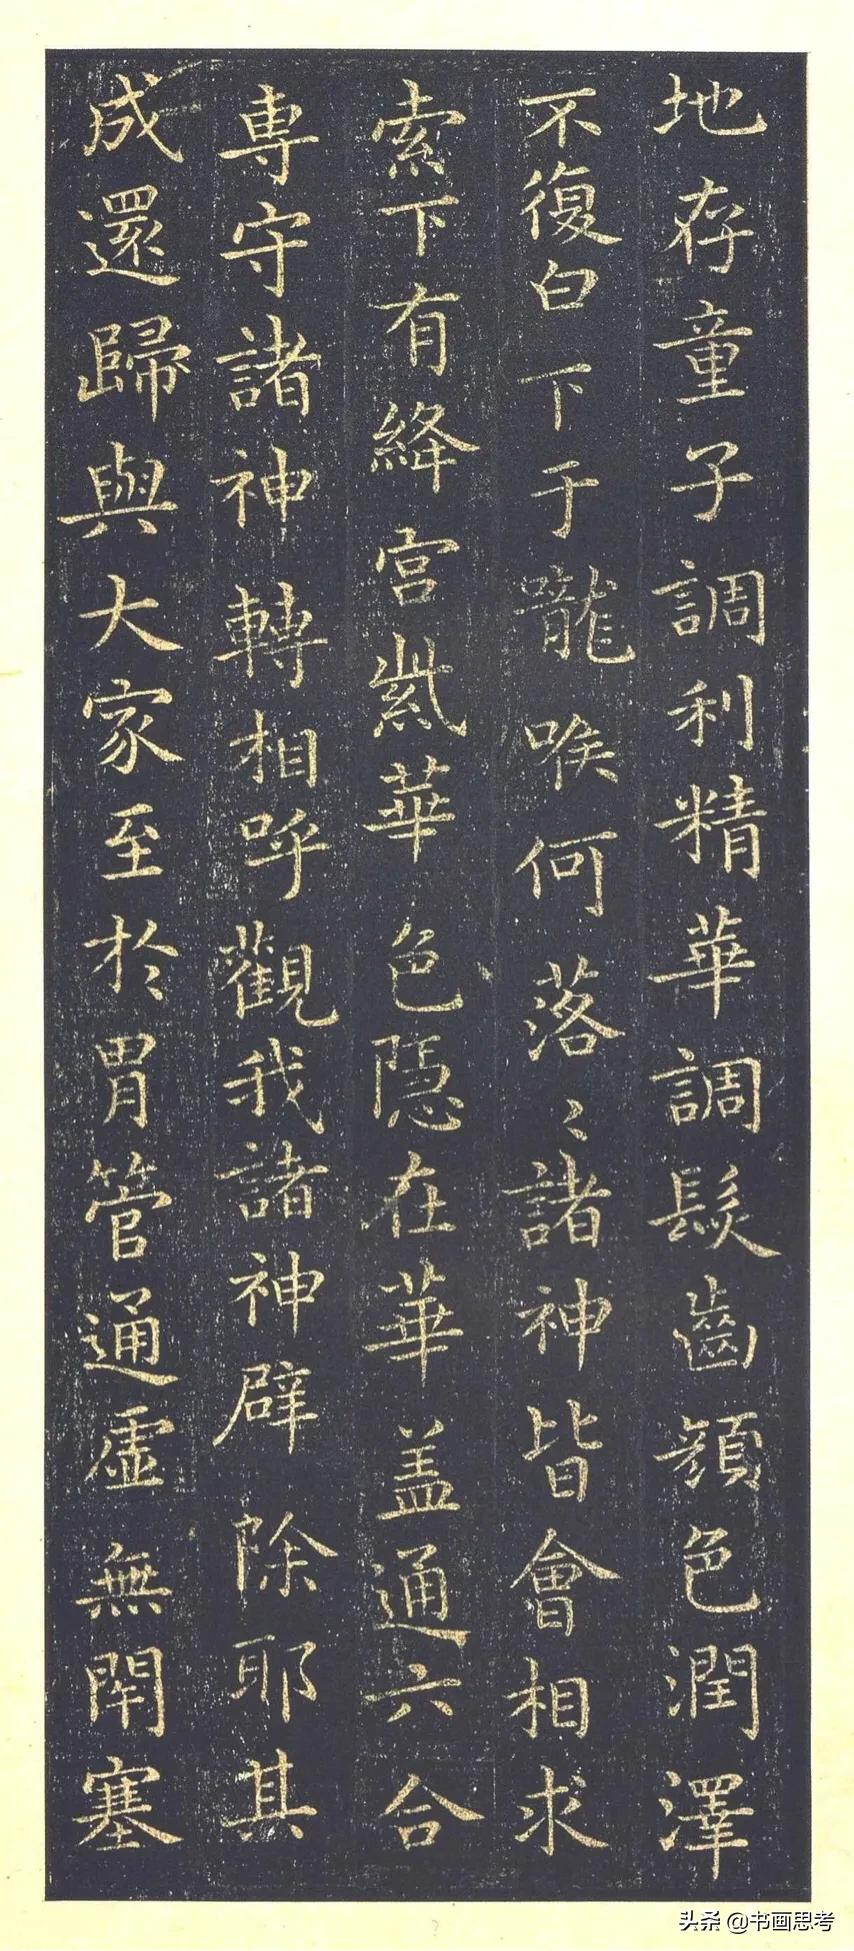 地存童子調利精華調髮齒顏色潤澤
不復白下于嚨喉何落〻諸神皆會相求
索下有絳宮紫華色隱在華盖通六合
専守諸神轉相呼觀我諸神辟除耶其
成還歸與大家至於胃管通虛無閇塞
头条 @书画思考